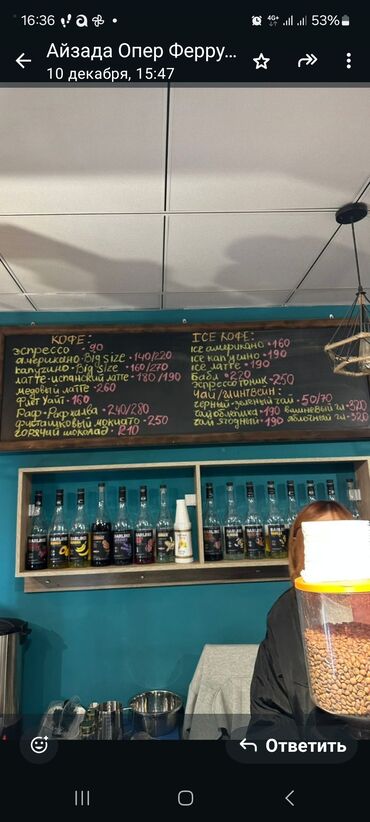 16:36 4G+ 53%
Айзада Опер Ферру...
10 декабря, 15:47
КОФЕ:
эспрессо • 90
американо • Big size • 140/220
капучино • Big size • 160/270
латте • испанский латте • 180/190
медовый латте • 260
Флет Уайт • 160
Раф • Раф халва • 240/280
фисташковый мокиато • 250
горячий шоколад • 210
ICE КОФЕ:
ice американо • 160
ice капучино • 190
ice латте • 190
Бабл • 220
эспрессо тоник • 250
ЧАЙ/ГЛИНТВЕЙН:
черный-зеленый чай • 50/70
чай облепиха • 190 вишневый гл • 320
чай ягодный • 190 яблочный гл • 320
BARLINE BARLINE BARLINE
Ответить